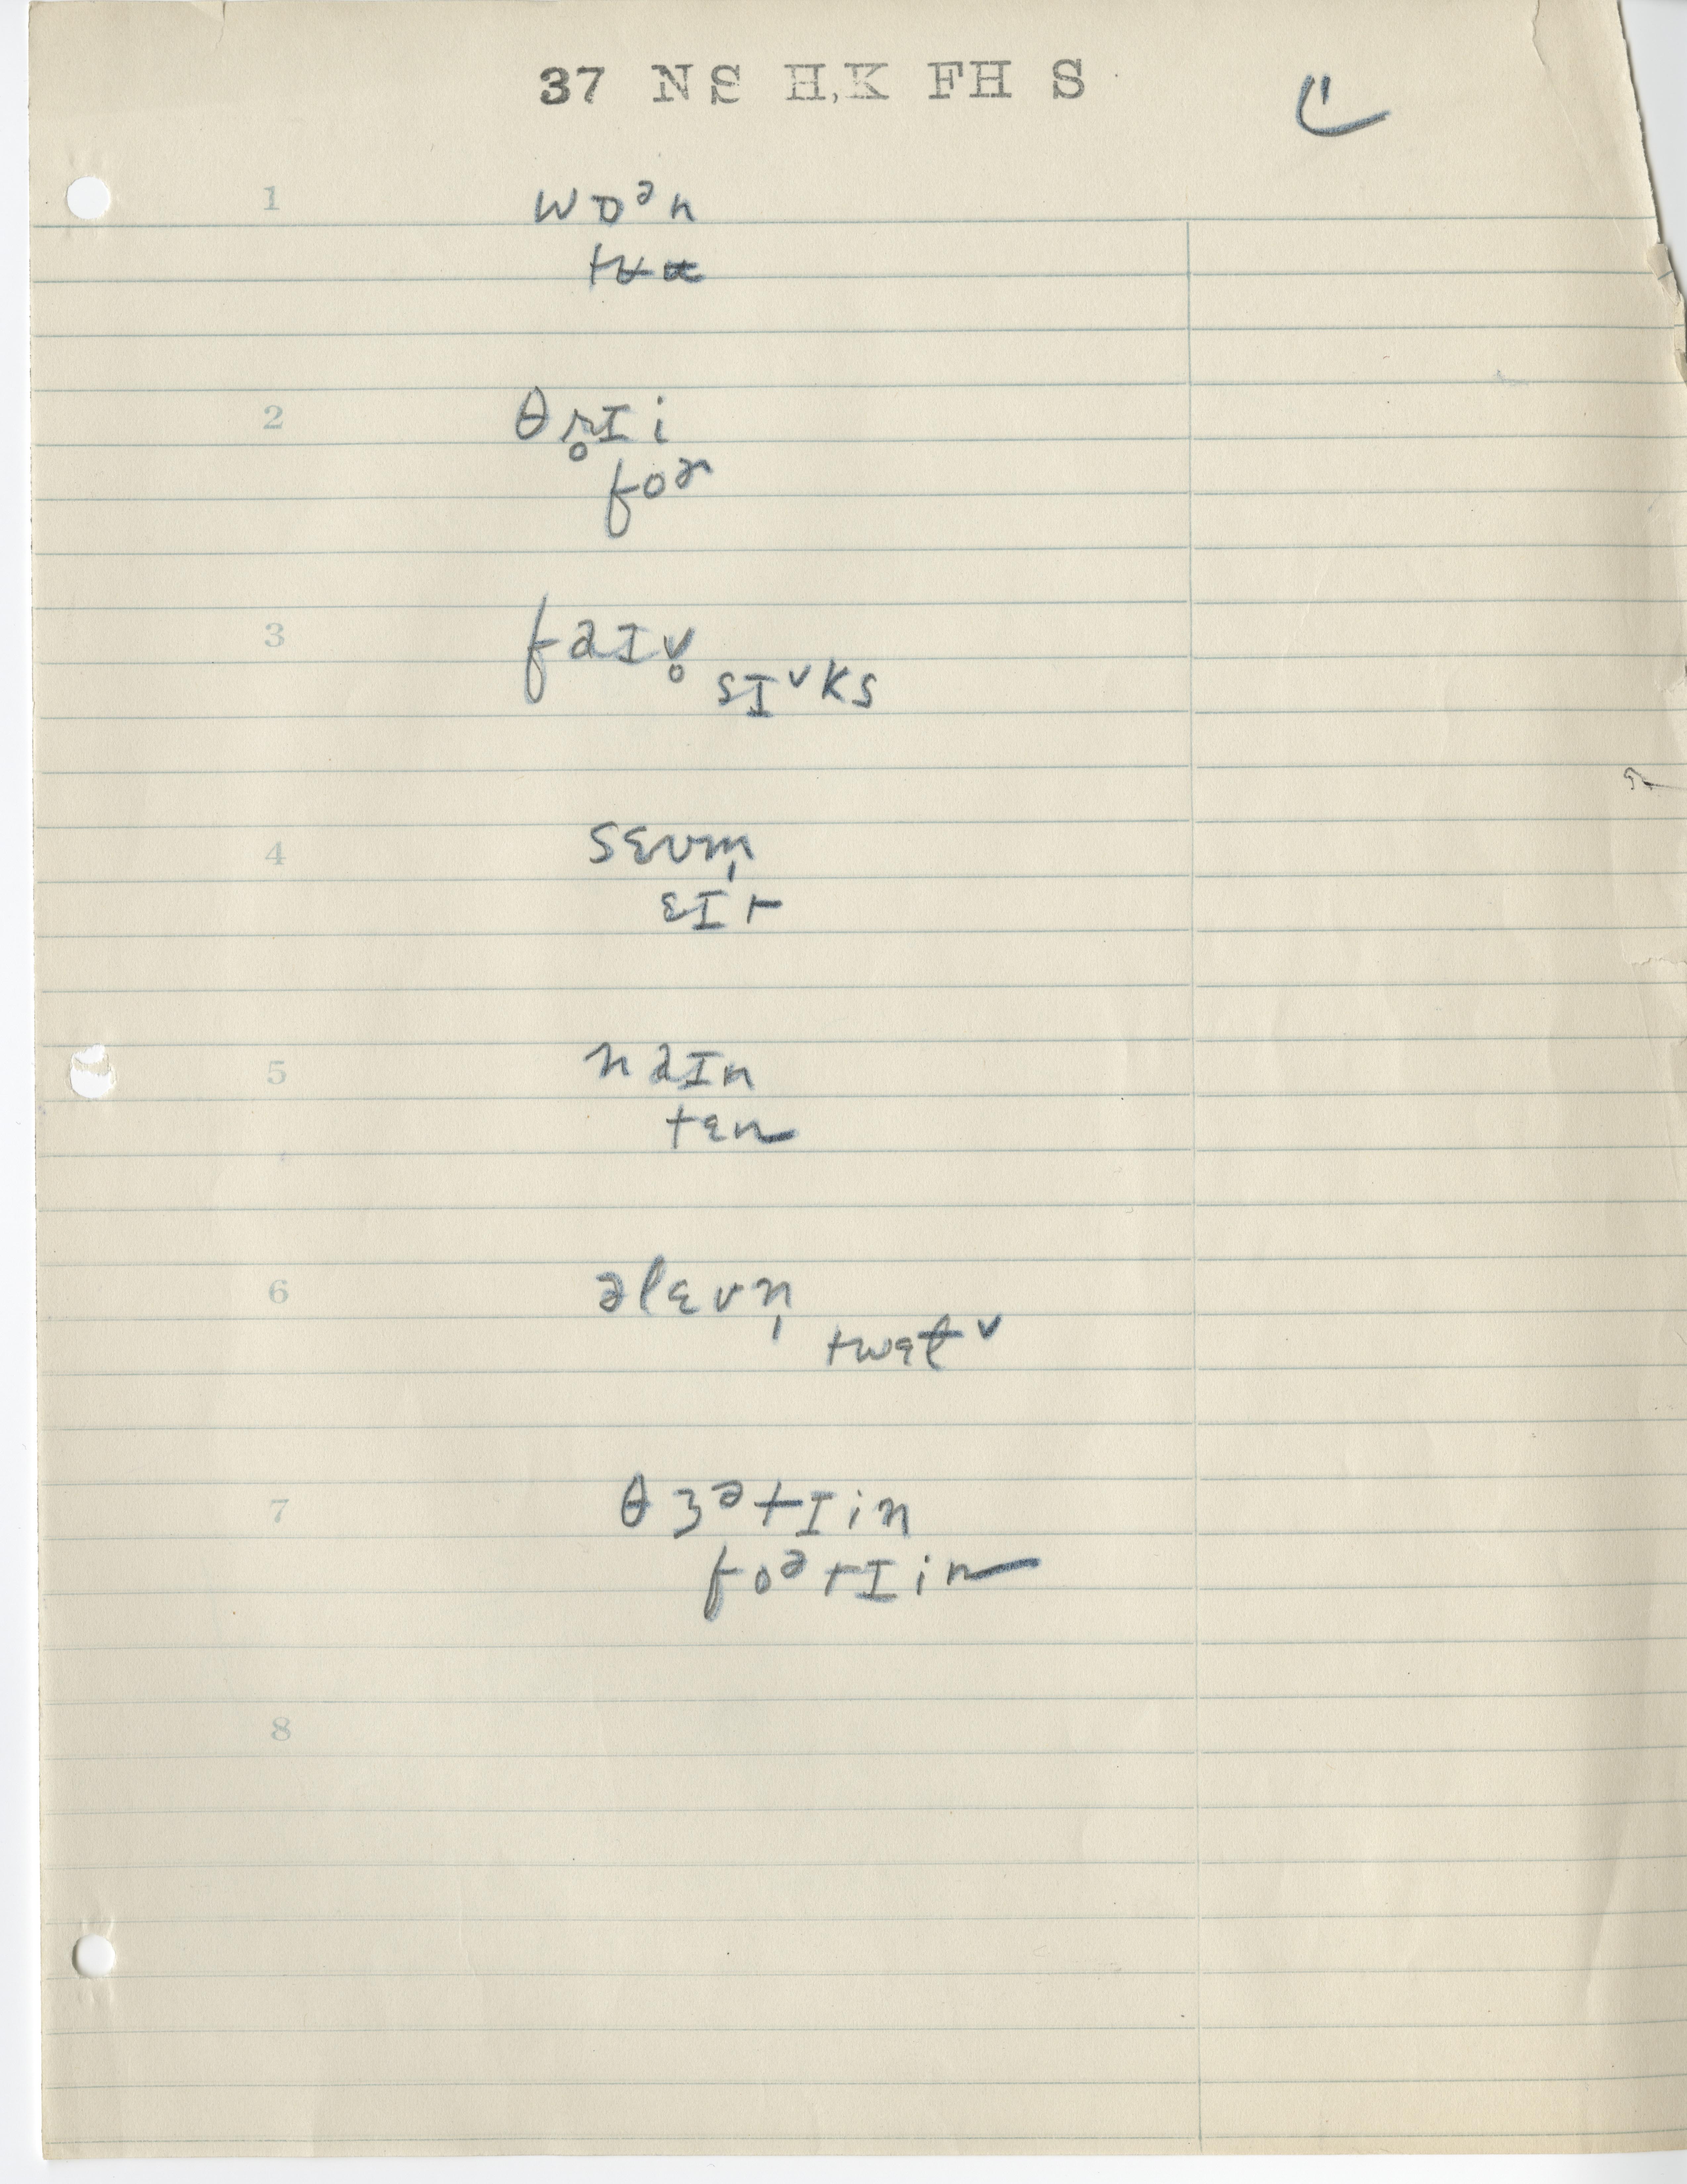 37 NS H,K FH S
1 wɒᵊn
tʉʉ
2 θr̥ɪi
foɚ
3 faɪv̥
sɪˇks
4 sɛvm̩
ɛɪt
5 naɪn
tɛn
6 əlɛvn̩
twɛɫv
7 θɜᵊtɪin
foᵊtɪin
8